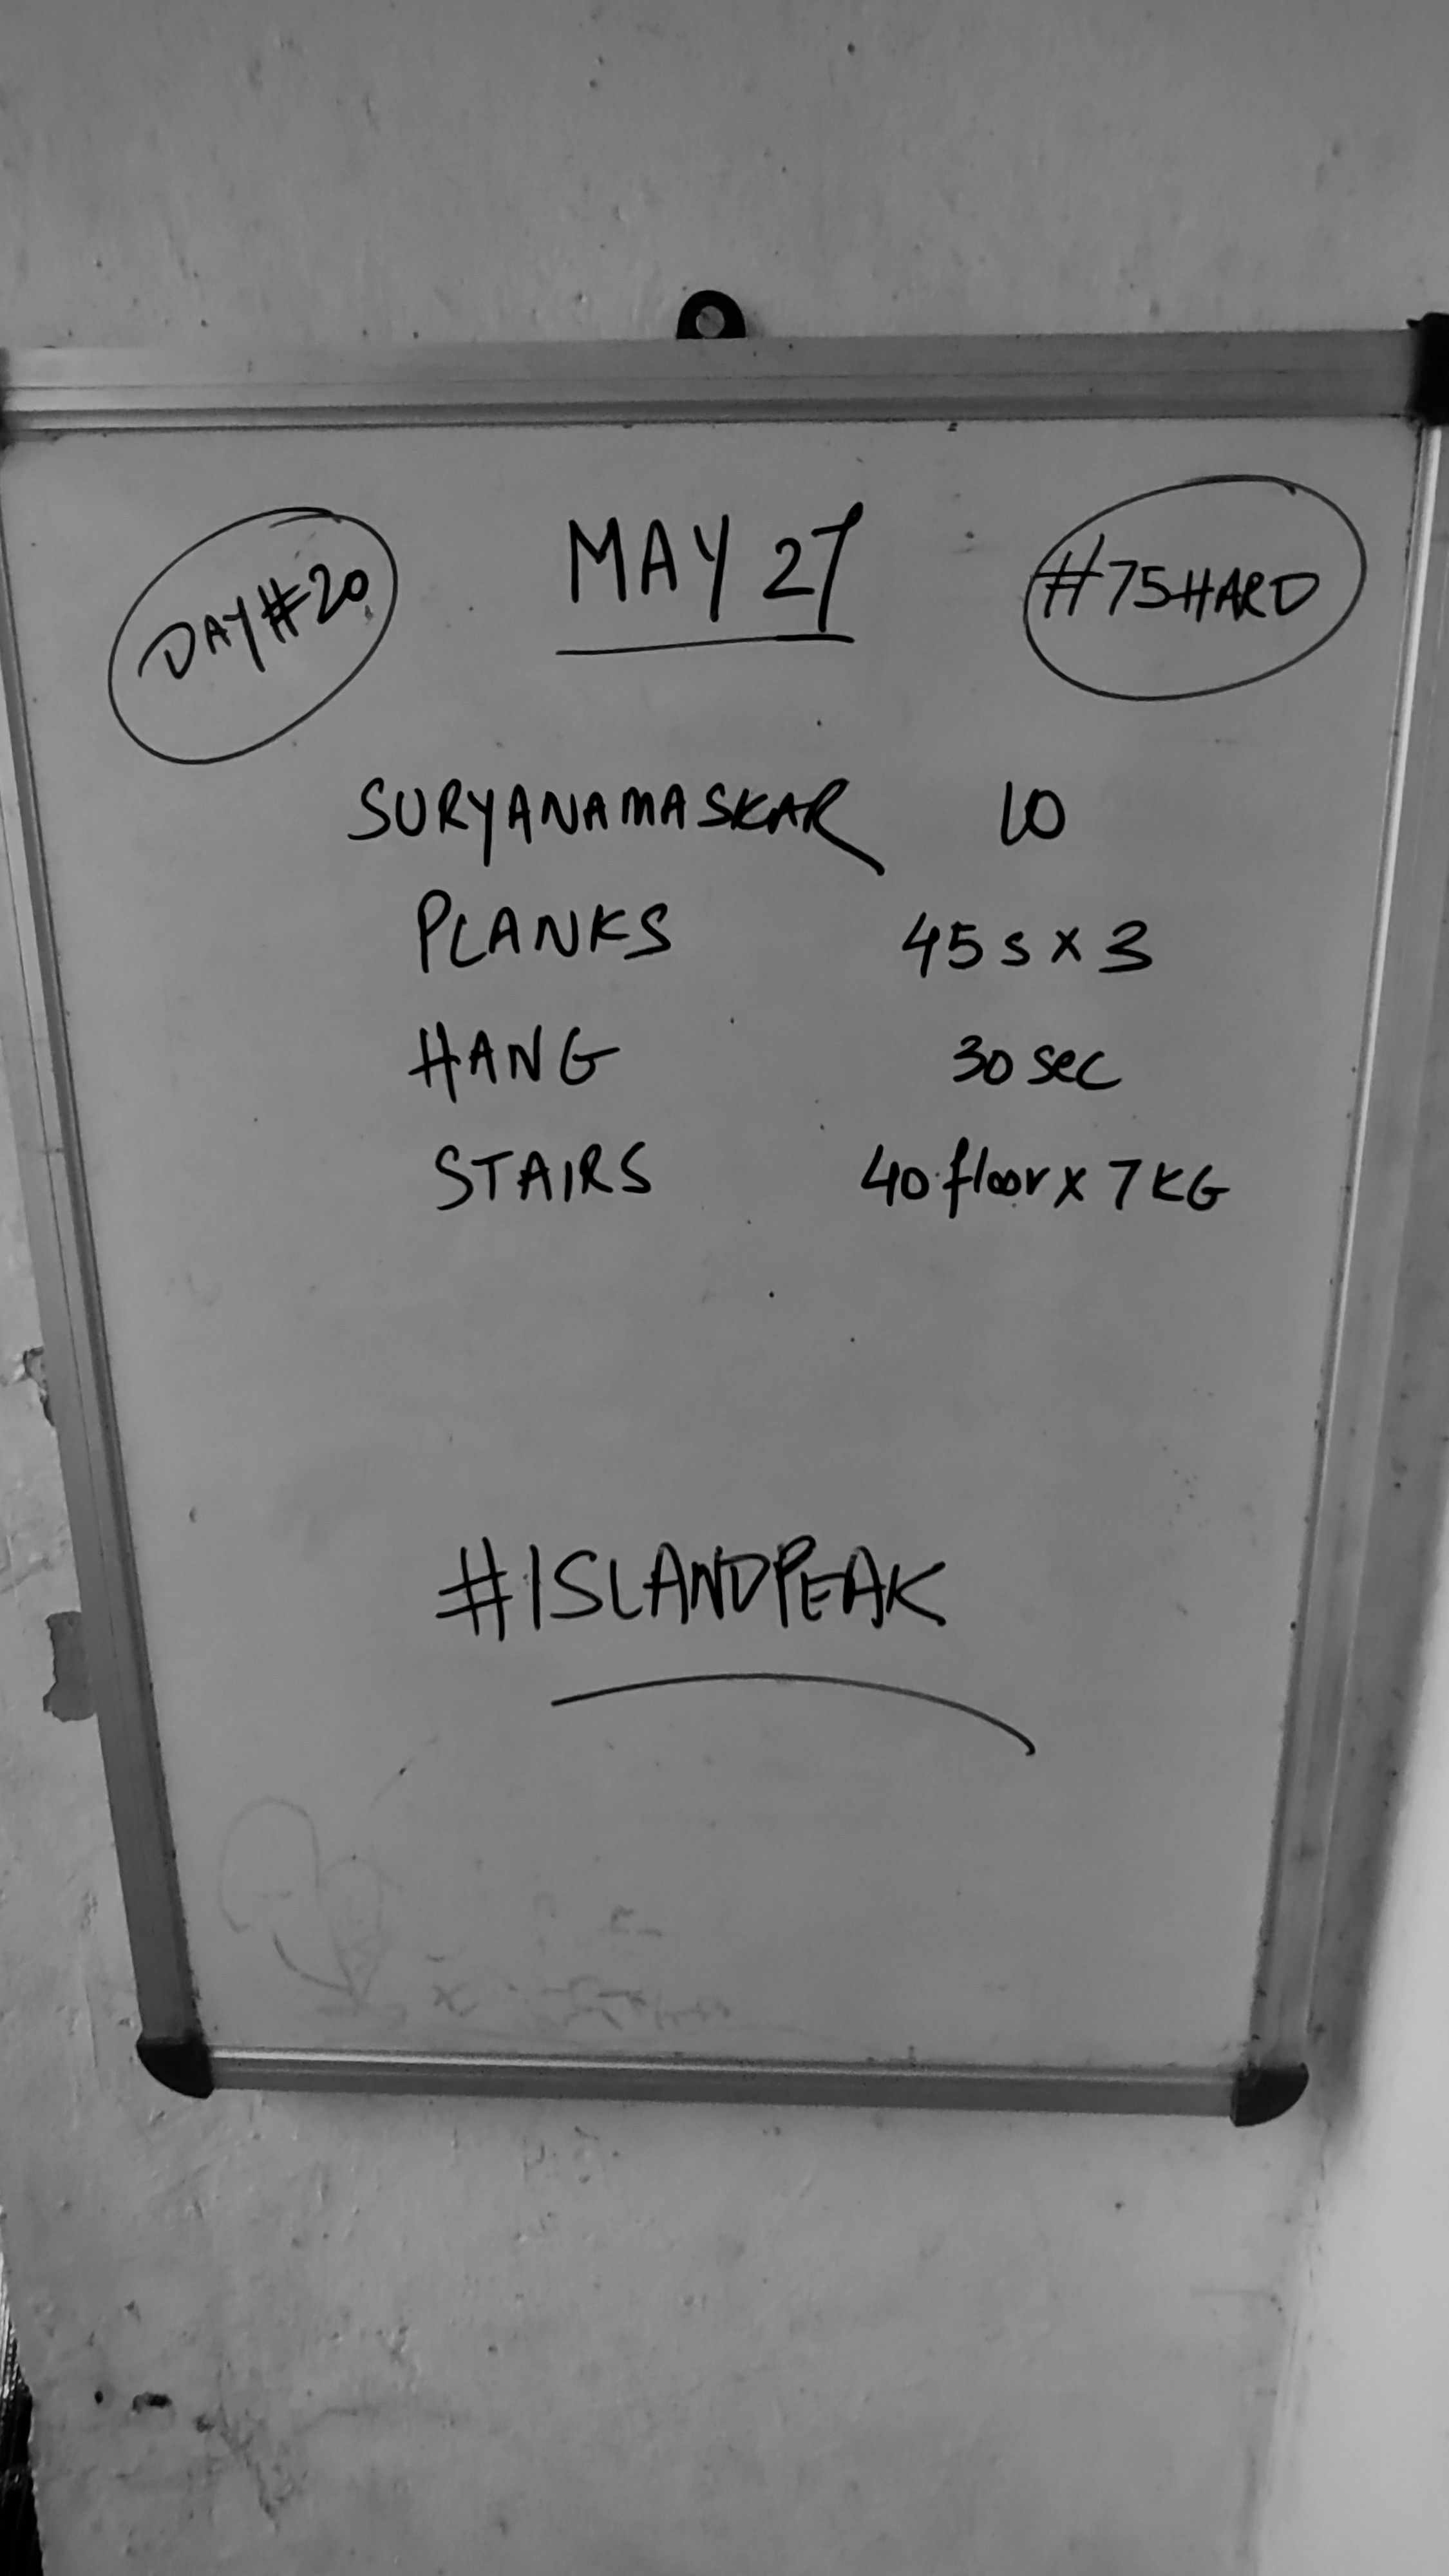 DAY#20 MAY 27 #75HARD
SURYANAMASKAR 10
PLANKS 45s x 3
HANG 30 sec
STAIRS 40 floor x 7 KG
#ISLANDPEAK